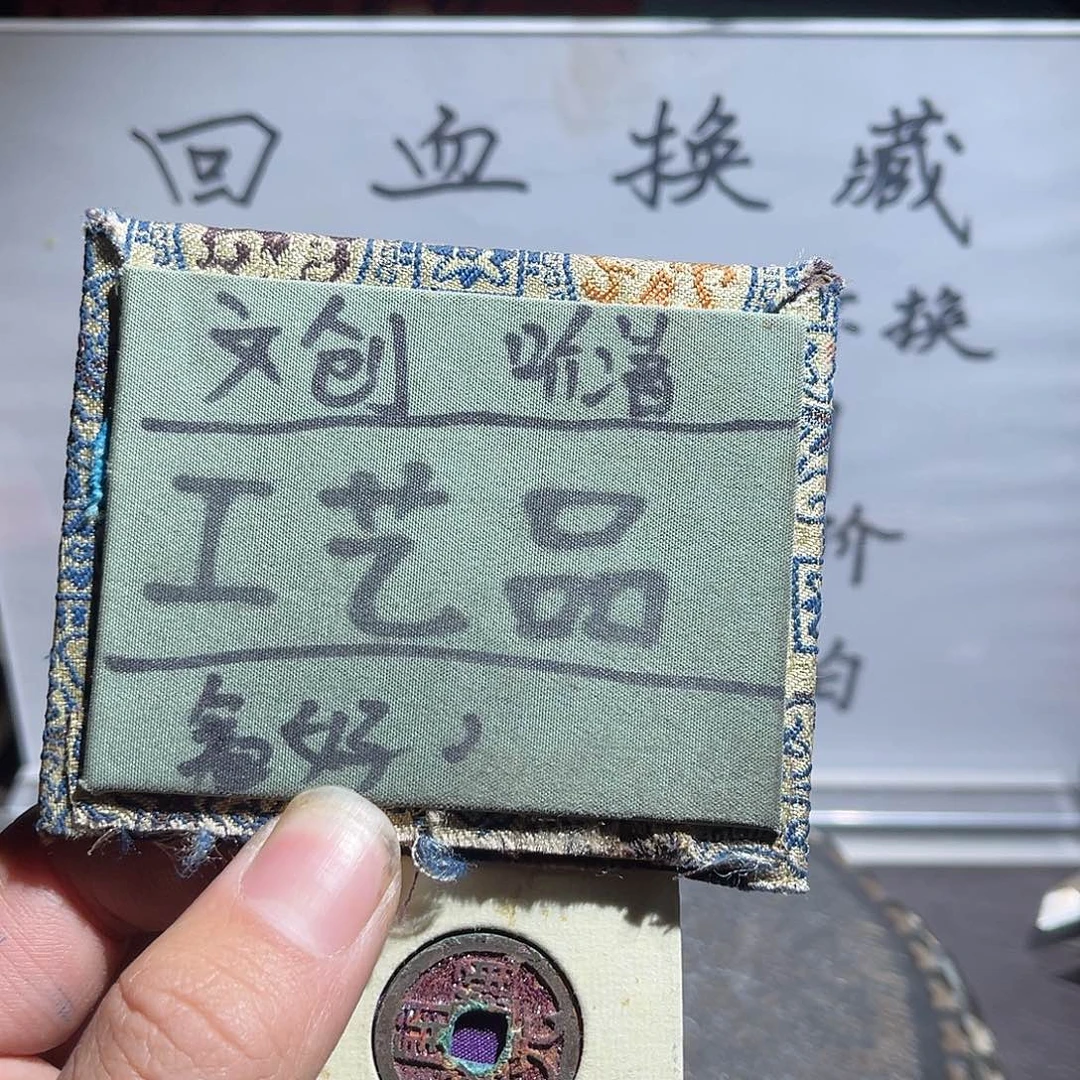 回血换藏
换
价
白
文创 听清
工艺品
看好,